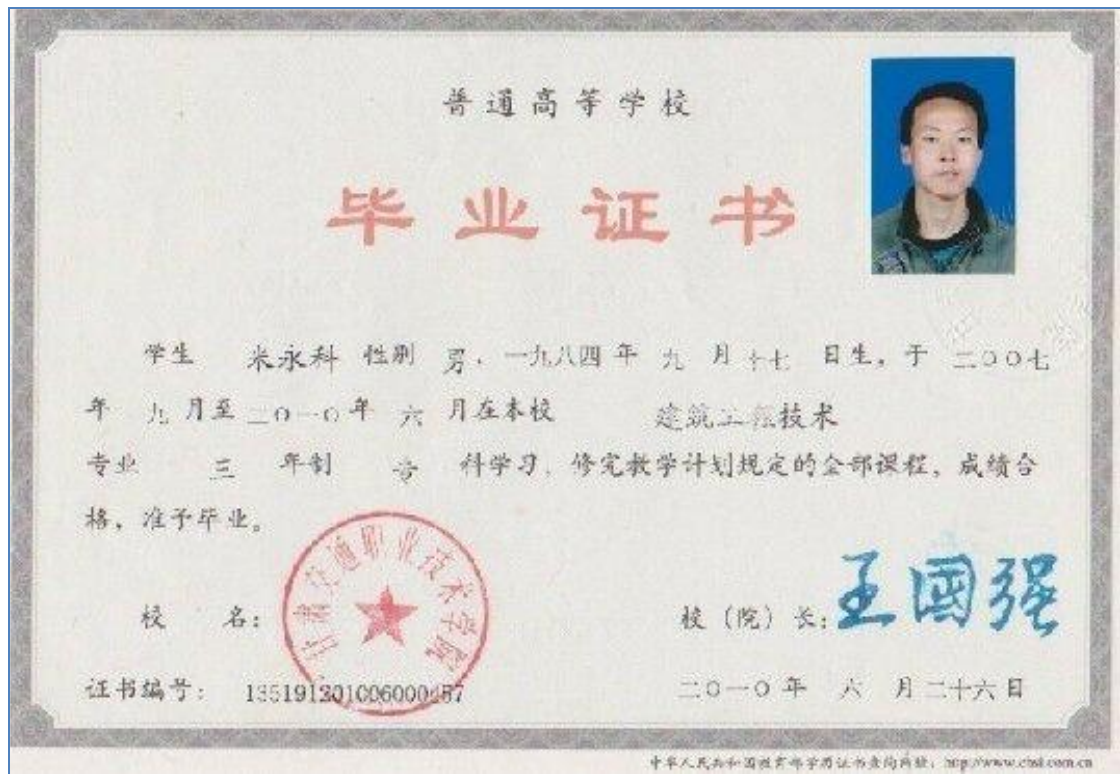 普通高等学校
毕业证书
学生 米永科 性别 男，一九八四年 九 月 十七 日生，于 二〇〇七
年 九 月至 二〇一〇年 六 月在本校 建筑工程技术
专业 三 年制 专 科学习，修完教学计划规定的全部课程，成绩合
格，准予毕业。
甘肃交通职业技术学院
校 名：
校（院）长：王國强
证书编号：
二〇一〇年 六 月二十六日
中华人民共和国教育部学历证书查询网址：http://www.chsi.com.cn